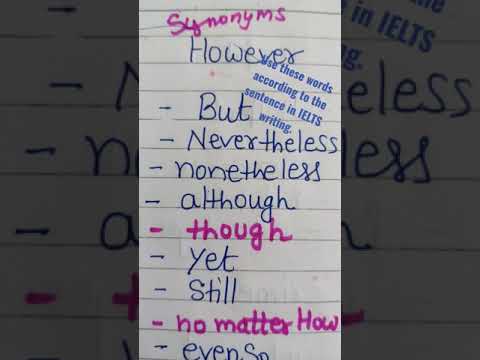 Synonyms
However
use these words
according to the
sentence in IELTS
writing.
- But
- Nevertheless
- nonetheless
- although
- though
- yet
- Still
- no matter How
- even So